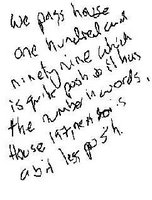 we pass house
one hundred and
ninety nine which
is quite posh so it has
the number in words.
House 197, next door is
a bit less posh.